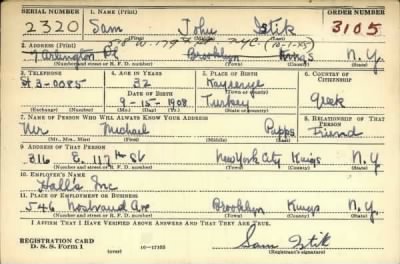 SERIAL NUMBER 1. NAME (Print) ORDER NUMBER
2320 Sam John Istik 3105
(First) (Middle) (Last)
W. 179 NYC (10-1-45)
2. ADDRESS (Print)
Arlington Pl Brooklyn Kings N.Y.
(Number and street or R. F. D. number) (Town) (County) (State)
3. TELEPHONE 4. AGE IN YEARS 5. PLACE OF BIRTH 6. COUNTRY OF CITIZENSHIP
St 3-0085 32
DATE OF BIRTH (Town or county)
9-15-1908 Turkey Greek
(Exchange) (No.) (Mo.) (Day) (Yr.) (State or country)
7. NAME OF PERSON WHO WILL ALWAYS KNOW YOUR ADDRESS 8. RELATIONSHIP OF THAT PERSON
Mr Michael Papps Friend
(Mr., Mrs., Miss) (First) (Middle) (Last)
9. ADDRESS OF THAT PERSON
316 E. 117th St New York City Kings N.Y.
(Number and street or R. F. D. number) (Town) (County) (State)
10. EMPLOYER'S NAME
Hall's Inc
11. PLACE OF EMPLOYMENT OR BUSINESS
546 Nostrand Ave Brooklyn Kings N.Y.
(Number and street or R. F. D. number) (Town) (County) (State)
I AFFIRM THAT I HAVE VERIFIED ABOVE ANSWERS AND THAT THEY ARE TRUE.
REGISTRATION CARD
D. S. S. Form 1 (over) 16-17105 Sam Istik
(Registrant's signature)